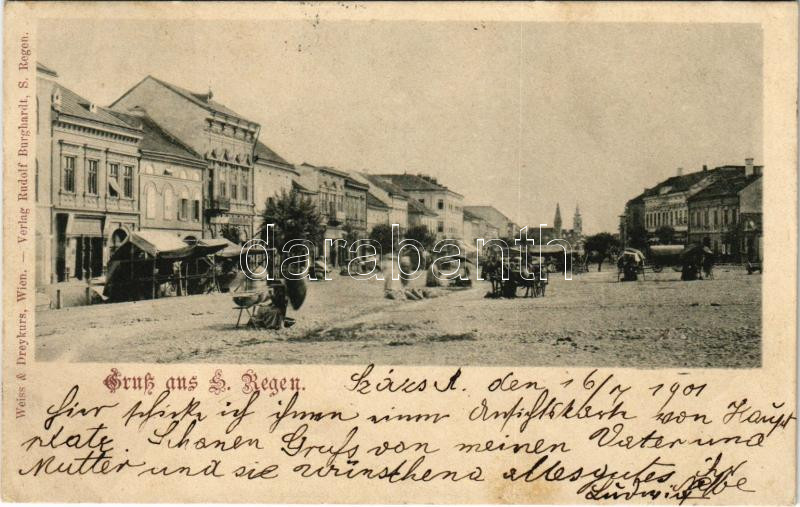 Weiss & Dreykurs, Wien. — Verlag Rudolf Burghardt, S. Regen.
darabanth
Gruß aus S. Regen.
den 16/ 1901
hier schicke ich ihnen einer Ansichtskarte von Haupt
platz. Schönen Gruss von meinen Vater und
Mutter und sie wünschen alles gutes ihr
Ludwig